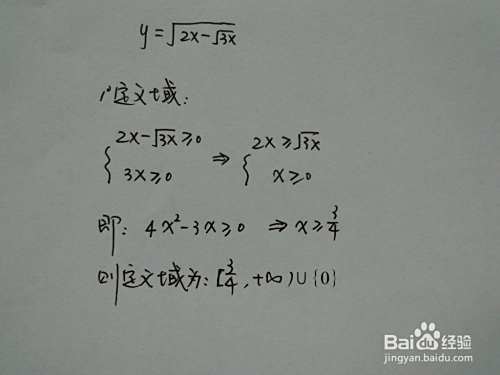 y = √(2x-√(3x))
1°定义域:
{ 2x-√(3x) ≥0 ⇒ { 2x≥√(3x)
3x≥0 x≥0
即: 4x²-3x≥0 ⇒ x≥3/4
则定义域为: [3/4, +∞)∪{0}
Bai du 经验
jingyan.baidu.com